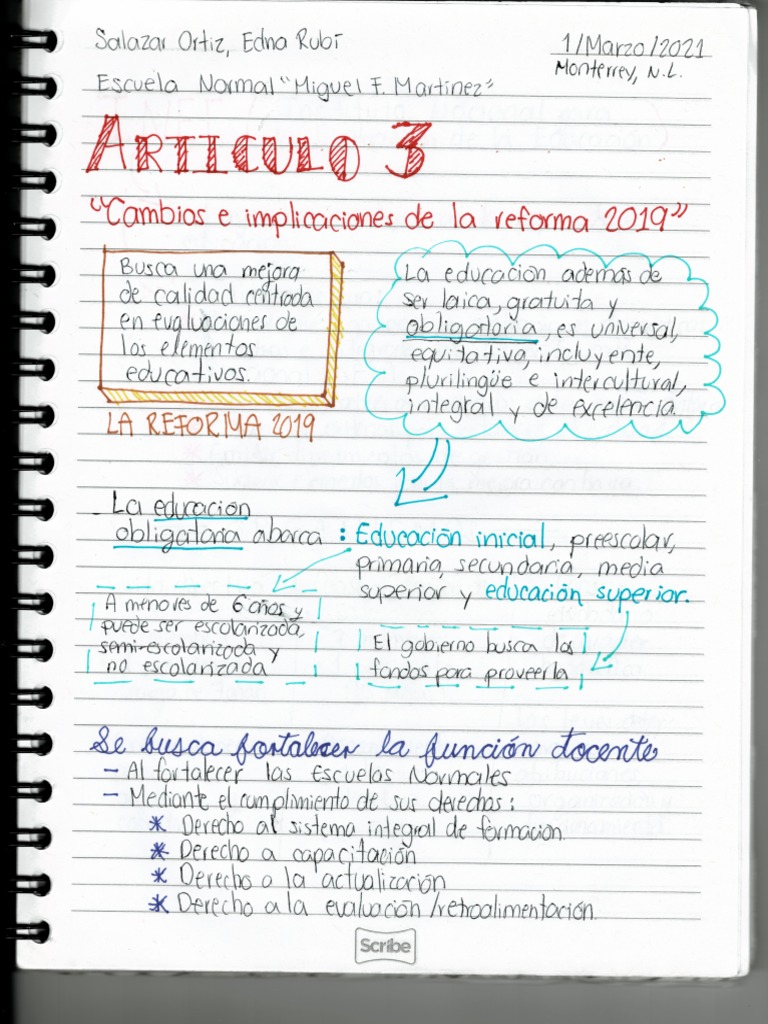 Salazar Ortiz, Edna Rubí
1/Marzo/2021
Monterrey, N.L.
Escuela Normal "Miguel F. Martinez"
ARTICULO 3
"Cambios e implicaciones de la reforma 2019"
Busca una mejora
de calidad centrada
en evaluaciones de
los elementos
educativos.
LA REFORMA 2019
La educación además de
ser laica, gratuita y
obligatoria, es universal,
equitativa, incluyente,
plurilingüe e intercultural,
integral y de excelencia.
La educacion
obligatoria abarca : Educación inicial, preescolar,
primaria, secundaria, media
superior y educación superior.
A menores de 6 años y
puede ser escolarizada,
semi-escolarizada y
no escolarizada
El gobierno busca los
fondos para proveerla
Se busca fortalecer la función docente
- Al fortalecer las Escuelas Normales
- Mediante el cumplimiento de sus derechos:
* Derecho al sistema integral de formacion.
* Derecho a capacitación
* Derecho a la actualización
* Derecho a la evaluación/retroalimentación.
Scribe